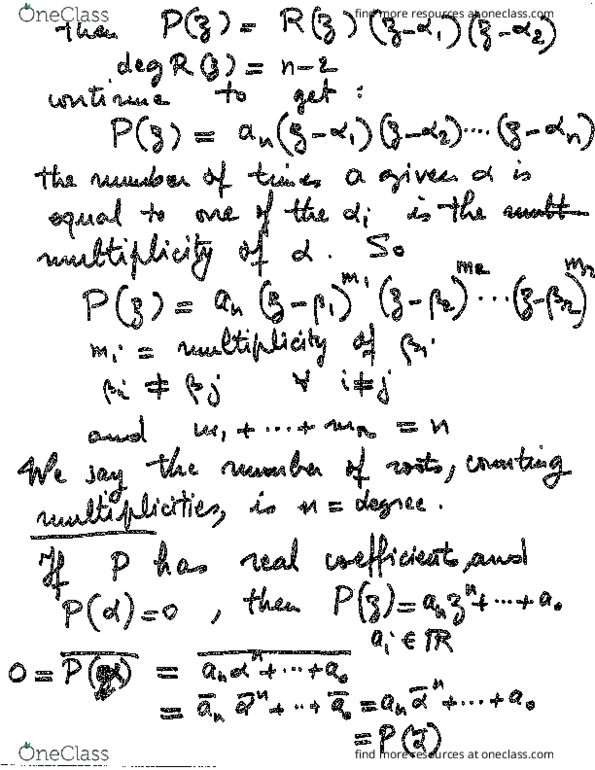 OneClass find more resources at oneclass.com
Then P(z) = R(z) (z-α₁)(z-α₂)
deg R(z) = n-2
continue to get :
P(z) = aₙ(z-α₁)(z-α₂)....(z-αₙ)
the number of times a given α is
equal to one of the αᵢ is the mult
multiplicity of α. So
P(z) = aₙ (z-β₁)^m₁ (z-β₂)^m₂ ...(z-β_r)^m_r
mᵢ = multiplicity of βᵢ
βᵢ ≠ βⱼ ∀ i≠j
and m₁ + ... + m_r = n
We say the number of roots, counting
multiplicities, is n = degree.
If P has real coefficients, and
P(α)=0 , then P(z) = aₙzⁿ+...+a₀
aᵢ ∈ ℝ
0 = \overline{P(α)} = \overline{aₙαⁿ+...+a₀}
= \overline{a}ₙ \overline{α}ⁿ+...+\overline{a}₀ = aₙ\overline{α}ⁿ+...+a₀
= P(\overline{α})
OneClass find more resources at oneclass.com